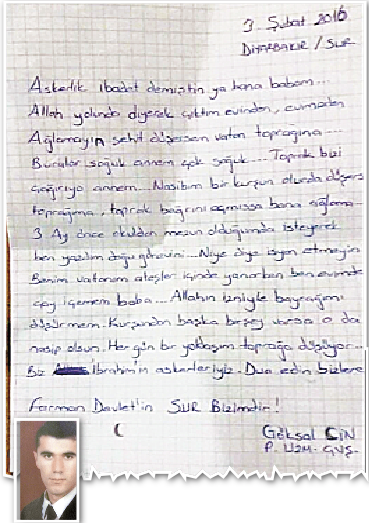 3 Şubat 2016
DİYARBAKIR / SUR
Askerlik ibadet demiştin ya bana babam...
Allah yolunda diyerek çıktım evinden, evimden
Ağlamayın şehit düşersem vatan toprağına...
Buralar soğuk annem çok soğuk.... Toprak bizi
çağırıyo annem... Nasibim bir kurşun olurda düşersem
toprağıma, toprak bağrını açmışsa bana ağlama
3 Ay önce okuldan mezun olduğumda isteyerek
ben yazdım doğu görevini... Niye diye isyan etmeyin
Benim vatanım ateşler içinde yanarken ben evimde
çay içemem baba... Allahın izniyle bayrağımı
düşürmem. Kurşundan başka bişey o da
nasip olsun. Her gün bir yoldaşım toprağa düşüyor..
Biz İbrahim'in askerleriyiz. Dua edin bizlere
Ferman Devlet'in SUR Bizimdir!
Göksal ÇİN
P. UZM. ÇVŞ.